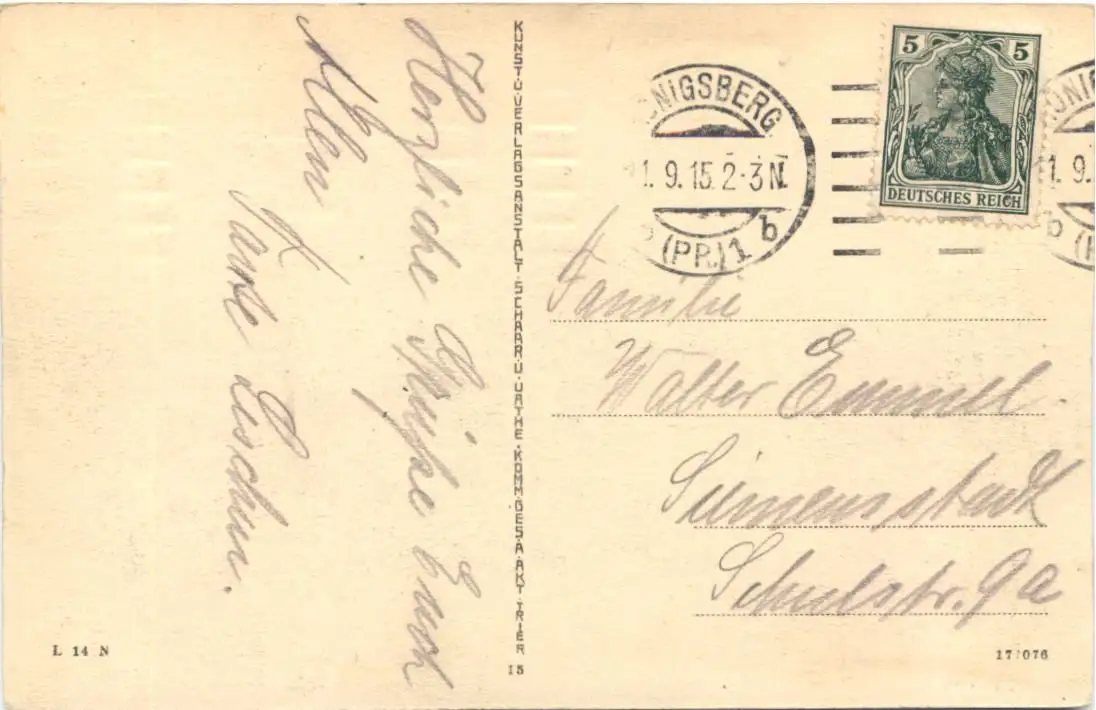 Herzliche Grüße Euch
Allen
Tante Lieschen.
KUNST-U-VERLAGSANSTALT-SCHAAR-U-DATHE-KOMM-GES-A-AKT-TRIER
15
KÖNIGSBERG
1.9.15.2-3N.
(PR.)1 b
5 5
DEUTSCHES REICH
1.9.
b
Familie
Walter Emmel
Siemensstadt
Schulstr. 9a
L 14 N
17/076